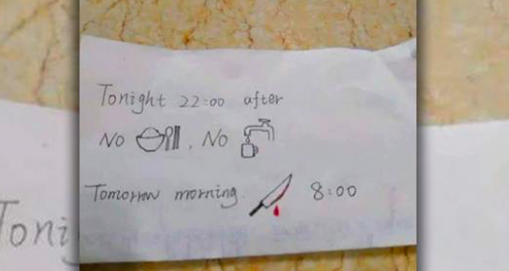 Tonight 22:00 after
No , No
Tomorrow morning. 8:00
Toni